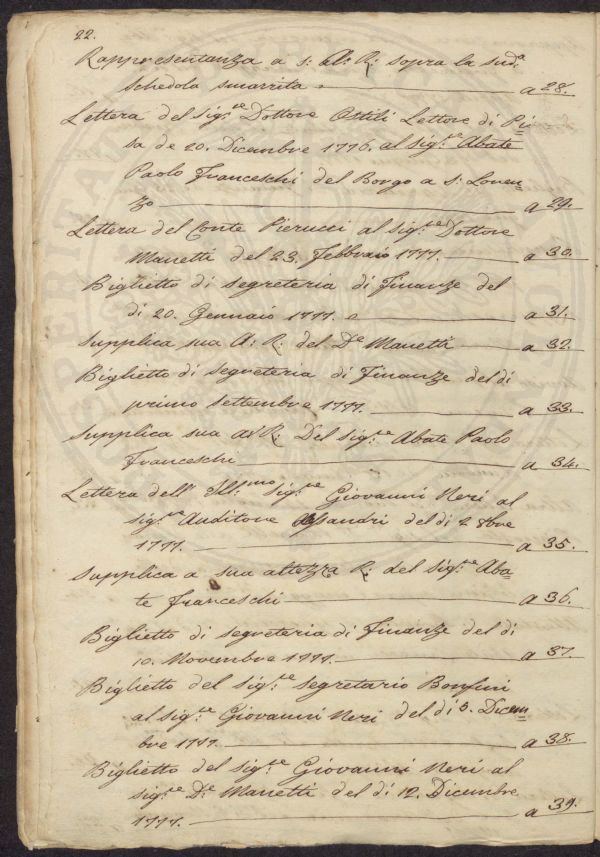 22.
Rappresentanza a S: A: R: sopra la sud.a
schedola smarrita a 28.
Lettera del Sig.re Dottore Ostili Lettore di Pi=
sa de 20. Dicembre 1776. al Sig.re Abate
Paolo Franceschi del Borgo a S: Loren=
zo a 29.
Lettera del Conte Pierucci al Sig.re Dottore
Manetti del 23. Febbraio 1777. a 30.
Biglietto di Segreteria di Finanze del
di 20. Gennaio 1777. a 31.
Supplica sua A: R: del D.e Manetti a 32.
Biglietto di Segreteria di Finanze del di
primo Settembre 1777. a 33.
Supplica sua A: R: Del Sig.re Abate Paolo
Franceschi a 34.
Lettera dell' Ill:mo Sig.re Giovanni Neri al
Sig.re Auditore Alessandri del di 2 8bre
1777. a 35.
Supplica a sua altezza R. del Sig.re Aba=
te Franceschi a 36.
Biglietto di Segreteria di Finanze del di
10. Novembre 1777. a 37.
Biglietto del Sig.re Segretario Bonfini
al Sig.re Giovanni Neri del di 3. Dicem=
bre 1777. a 38.
Biglietto del Sig.re Giovanni Neri al
Sig.re D.e Manetti del di 12. Dicembre
1777. a 39.